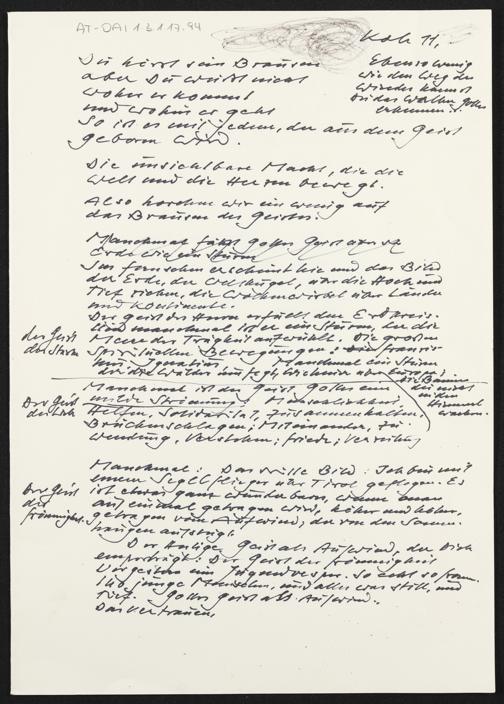 AT-DAI 1 3 1 17.94
Koh 11,
Ebenso wenig
wie den Weg des
Windes kannst
du das Walten Gottes
erkennen.
Du hörst sein Brausen
aber Du weißt nicht
woher er kommt
und wohin er geht
So ist es mit jedem, der aus dem Geist
geboren wird.
Die unsichtbare Macht, die die
Welt und die Herzen bewegt.
Also horchen wir ein wenig auf
das Brausen des Geistes:
Manchmal fährt Gottes Geist über die
Erde wie ein Sturm
Im Fernsehen erscheint hie und da das Bild
der Erde, der Weltkugel, über die Hoch und
Tief ziehen, die Wolkenwirbel über Länder
und Kontinente.
Der Geist des Herrn erfüllt den Erdkreis.
Und manchmal ist er ein Sturm, der die
Meere der Trägheit aufwühlt. Die großen
spirituellen Bewegungen:
Ignatius, Manchmal ein Sturm
der Geist
des Sturms
die Bäume
die nicht
in den
Himmel
wachsen.
Manchmal ist der Geist Gottes eine
milde Strömung: Menschlichkeit,
Helfen, Solidarität, Zusammenhalten,
Brückenschlagen, Miteinander, Zu-
wendung, Verstehen, Friede, Verzeihung
Der Geist
der Liebe
Manchmal: Das stille Bild: Ich bin mit
einem Segelflieger über Tirol geflogen. Es
ist etwas ganz Wunderbares, wenn man
auf einmal getragen wird, höher und höher,
getragen vom Aufwind, der von den Sonnen-
hängen aufsteigt.
Der Geist
der
Frömmigkeit.
Der Heilige Geist als Aufwind, der Dich
emporträgt: Der Geist der Frömmigkeit
Vorgestern ein Jugendvesper. So echt so fromm.
140 junge Menschen, und alles war still, und
tief. Gottes Geist als Aufwind.
Das Vertrauen,